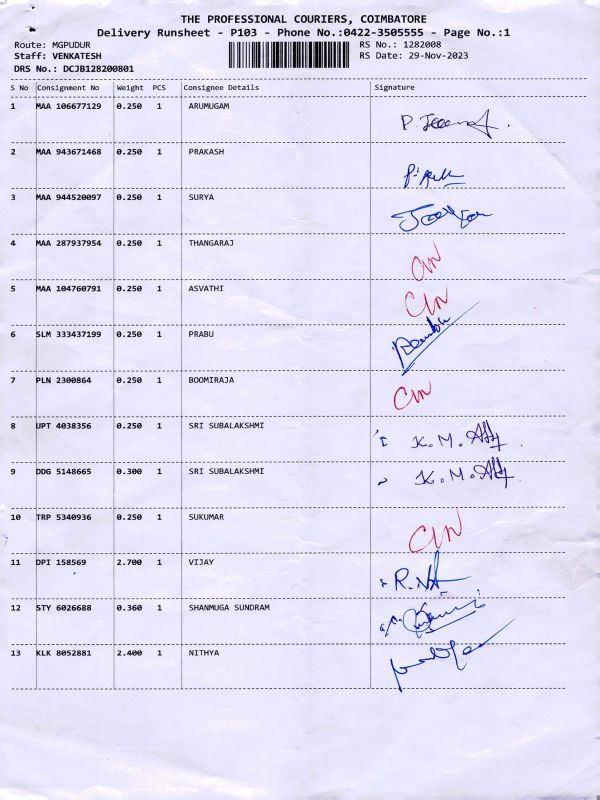 THE PROFESSIONAL COURIERS, COIMBATORE
Delivery Runsheet - P103 - Phone No.:0422-3505555 - Page No.:1
Route: MGPUDUR RS No.: 1282008
Staff: VENKATESH RS Date: 29-Nov-2023
DRS No.: DCJB128200801
S No Consignment No Weight PCS Consignee Details Signature
1 MAA 106677129 0.250 1 ARUMUGAM
2 MAA 943671468 0.250 1 PRAKASH
3 MAA 944520097 0.250 1 SURYA
4 MAA 287937954 0.250 1 THANGARAJ
5 MAA 104760791 0.250 1 ASVATHI
6 SLM 333437199 0.250 1 PRABU
7 PLN 2300864 0.250 1 BOOMIRAJA
8 UPT 4038356 0.250 1 SRI SUBALAKSHMI K.M.
9 DDG 5148665 0.300 1 SRI SUBALAKSHMI K.M.
10 TRP 5340936 0.250 1 SUKUMAR
11 DPI 158569 2.700 1 VIJAY
12 STY 6026688 0.360 1 SHANMUGA SUNDRAM
13 KLK 8052881 2.400 1 NITHYA